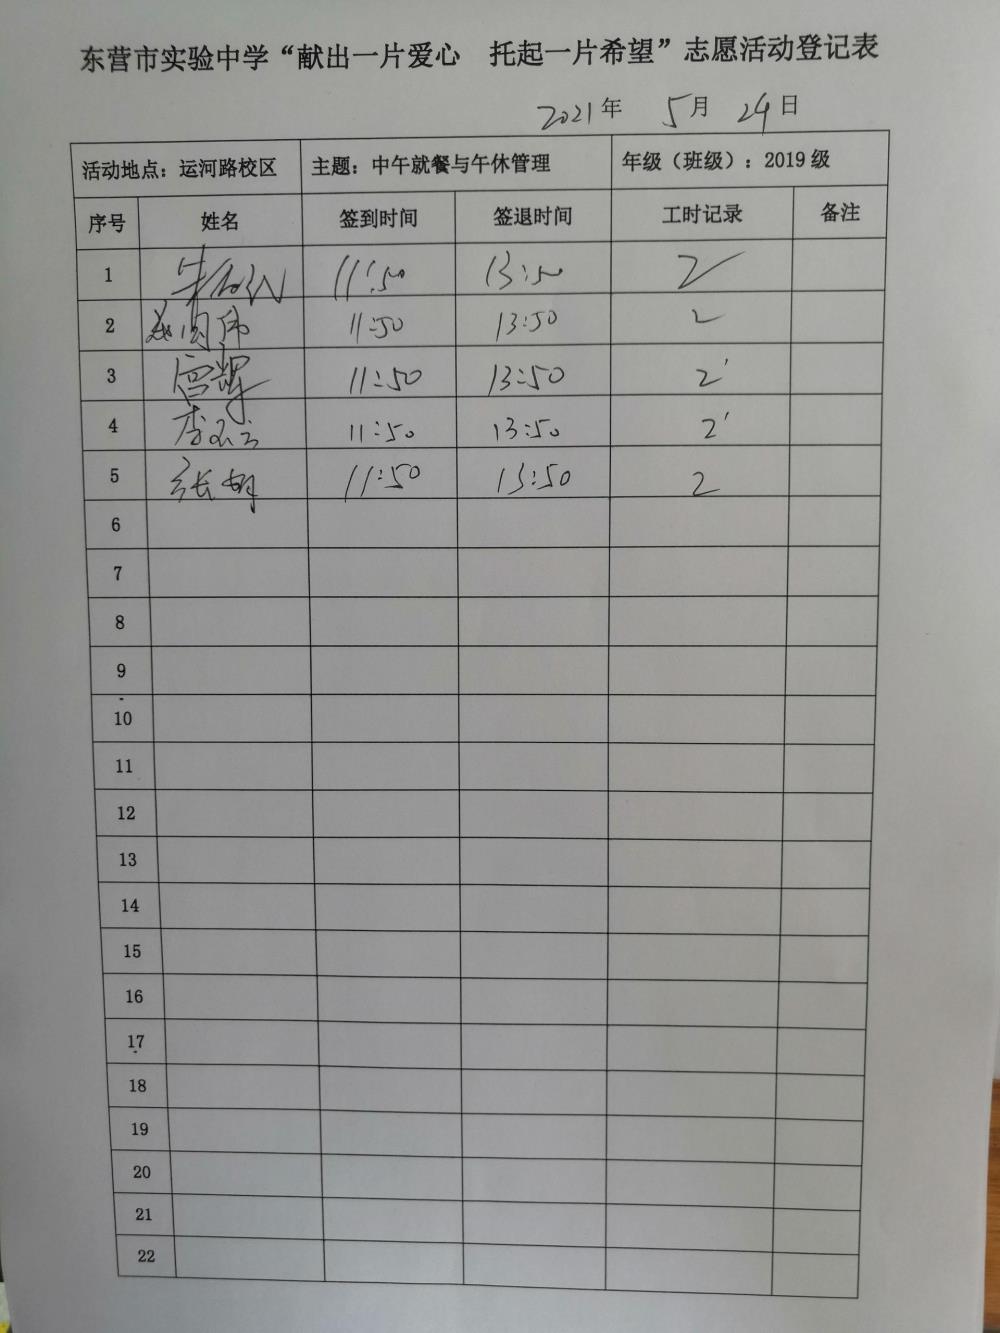 东营市实验中学“献出一片爱心 托起一片希望”志愿活动登记表
2021年 5月 24日
活动地点：运河路校区 主题：中午就餐与午休管理 年级（班级）：2019级
序号 姓名 签到时间 签退时间 工时记录 备注
1 11:50 13:50 2
2 11:50 13:50 2
3 11:50 13:50 2'
4 11:50 13:50 2'
5 11:50 13:50 2
6
7
8
9
10
11
12
13
14
15
16
17
18
19
20
21
22